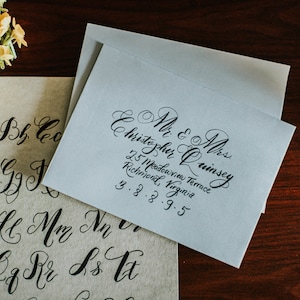 Mr & Mrs
Christopher Quinsey
25 Meadowview Terrace
Richmond, Virginia
2·3·8·9·5
Bb Cc
Gg H
Ll Mm Nn O
q Rr Ss Tt